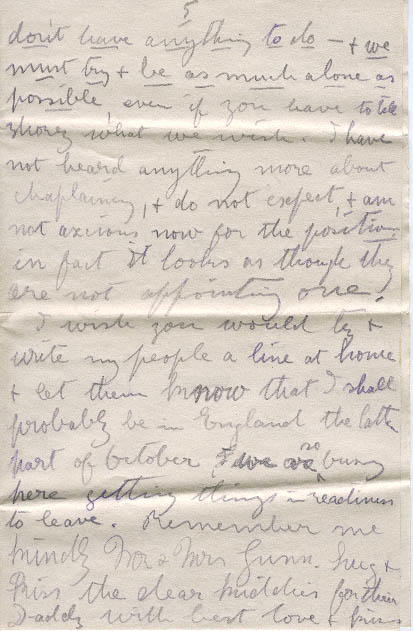 5
don't have anything to do — & we
must try & be as much alone as
possible, even if you have to tell
what we wish. I have
not heard anything more about
chaplaincy, & do not expect, & am
not axcious now for the position
in fact it looks as though they
are not appointing one.
I wish you would try &
write my people a line at home
& let them know that I shall
probably be in England the latter
part of October. so busy
here getting things in readiness
to leave. Remember me
kindly Mr & Mrs Gunn. hug &
kiss the dear kiddies for their
Daddy with best love & kisses